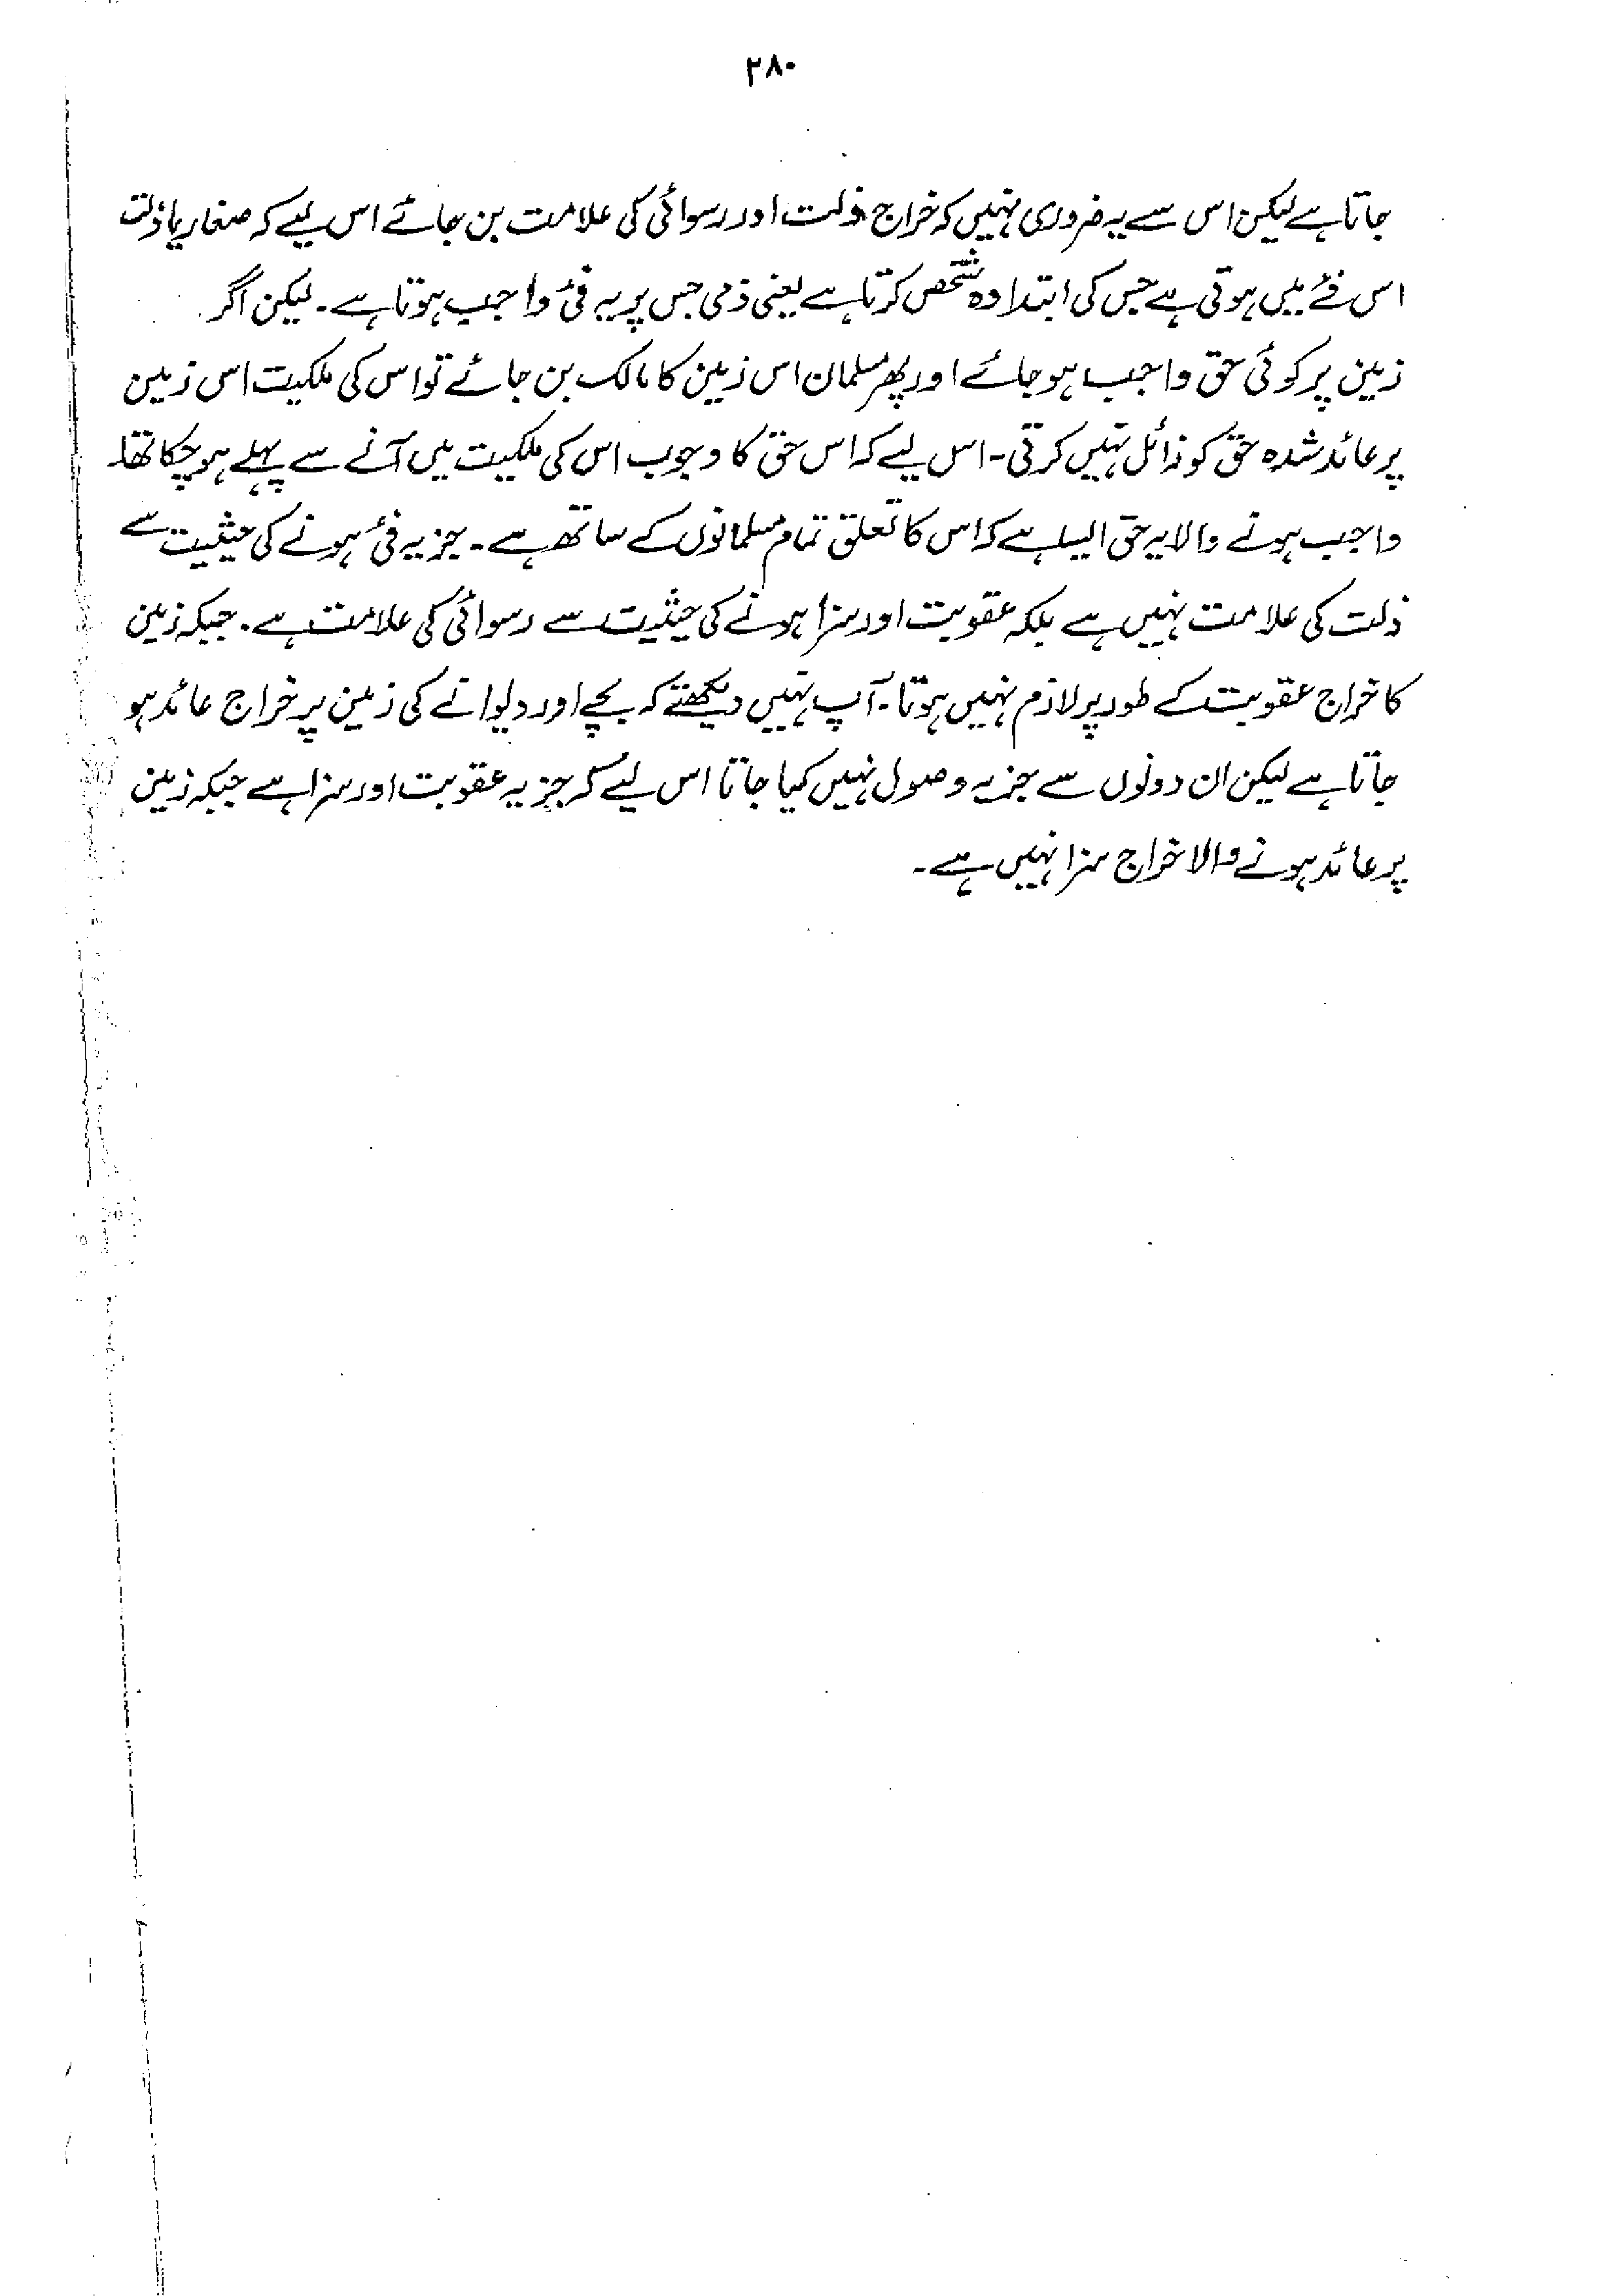 ۲۸۰
جاتا ہے لیکن اس سے یہ ضروری نہیں کہ خراج ذلت اور رسوائی کی علامت بن جائے اس لیے کہ صغار یا ذلت
اس فئے میں ہوتی ہے جس کی ابتدا وہ شخص کرتا ہے یعنی ذمی جس پر یہ فئ واجب ہوتا ہے۔ لیکن اگر
زمین پر کوئی حق واجب ہو جائے اور پھر مسلمان اس زمین کا مالک بن جائے تو اس کی ملکیت اس زمین
پر عائد شدہ حق کو زائل نہیں کرتی۔ اس لیے کہ اس حق کا وجوب اس کی ملکیت میں آنے سے پہلے ہو چکا تھا۔
واجب ہونے والا یہ حق ایسا ہے کہ اس کا تعلق تمام مسلمانوں کے ساتھ ہے۔ جزیہ فئ ہونے کی حیثیت سے
ذلت کی علامت نہیں ہے بلکہ عقوبت اور سزا ہونے کی حیثیت سے رسوائی کی علامت ہے۔ جبکہ زمین
کا خراج عقوبت کے طور پر لازم نہیں ہوتا۔ آپ نہیں دیکھتے کہ بچے اور دیوانے کی زمین پر خراج عائد ہو
جاتا ہے لیکن ان دونوں سے جزیہ وصول نہیں کیا جاتا اس لیے کہ جزیہ عقوبت اور سزا ہے جبکہ زمین
پر عائد ہونے والا خراج سزا نہیں ہے۔